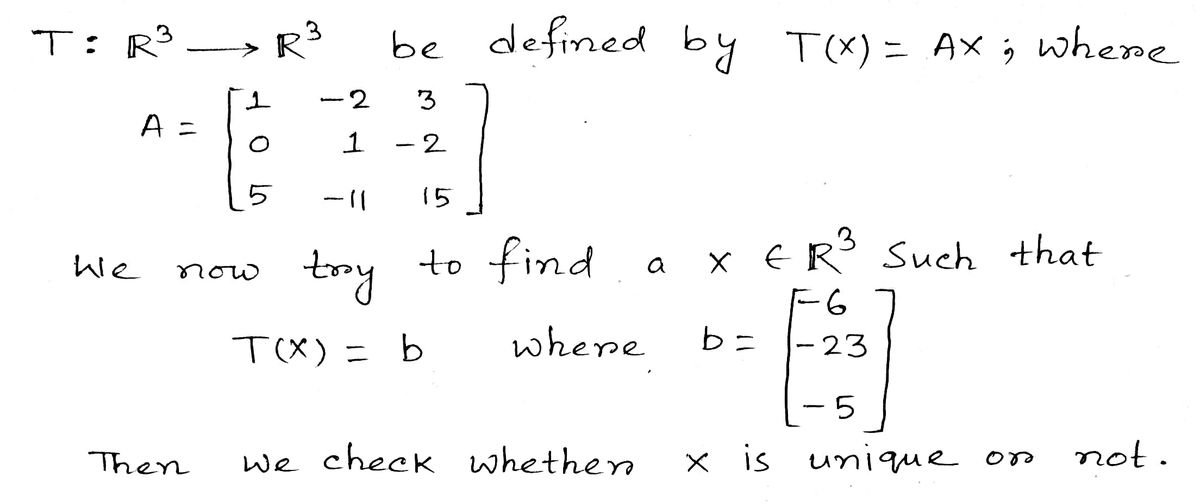 T: ℝ³ ⟶ ℝ³ be defined by T(x) = Ax ; where
A = [ 1 -2 3
0 1 -2
5 -11 15 ]
We now try to find a x ∈ ℝ³ Such that
T(x) = b where b = [ -6
-23
-5 ]
Then we check whether x is unique or not.